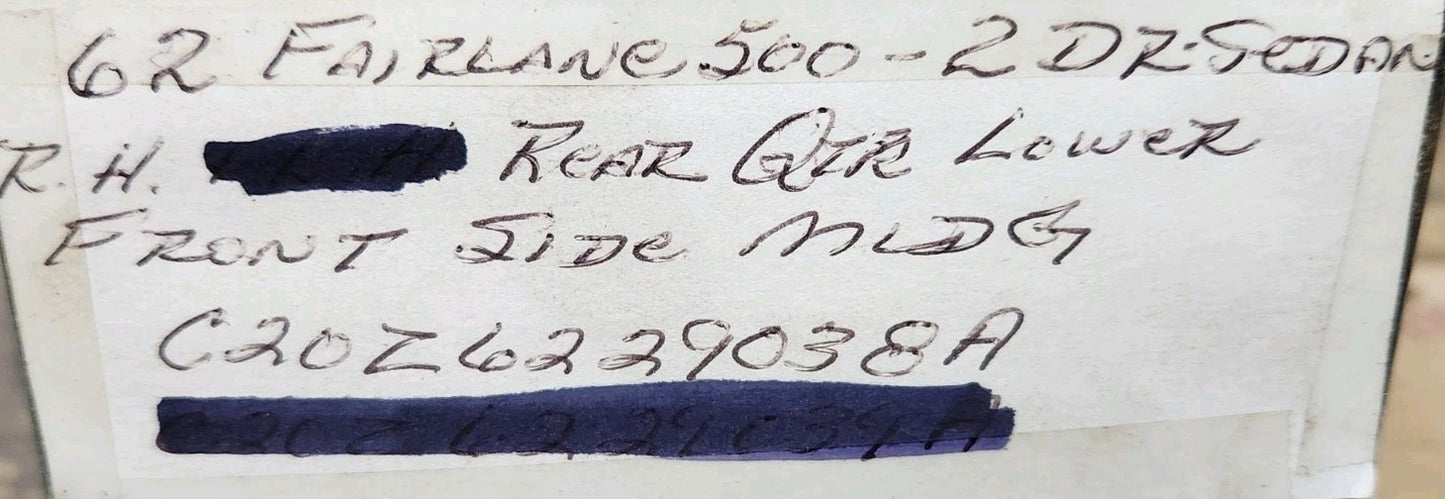 62 FAIRLANE 500 - 2 DR. SEDAN
R.H. REAR QTR LOWER
FRONT SIDE MLDG
C2OZ6229038A